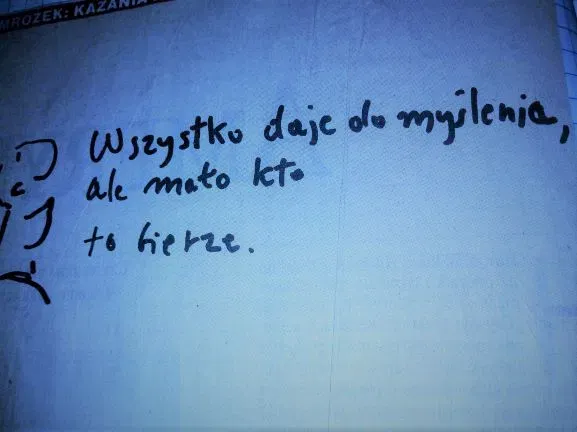 MROŻEK: KAZANIA
Wszystko daje do myślenia,
ale mało kto
to bierze.